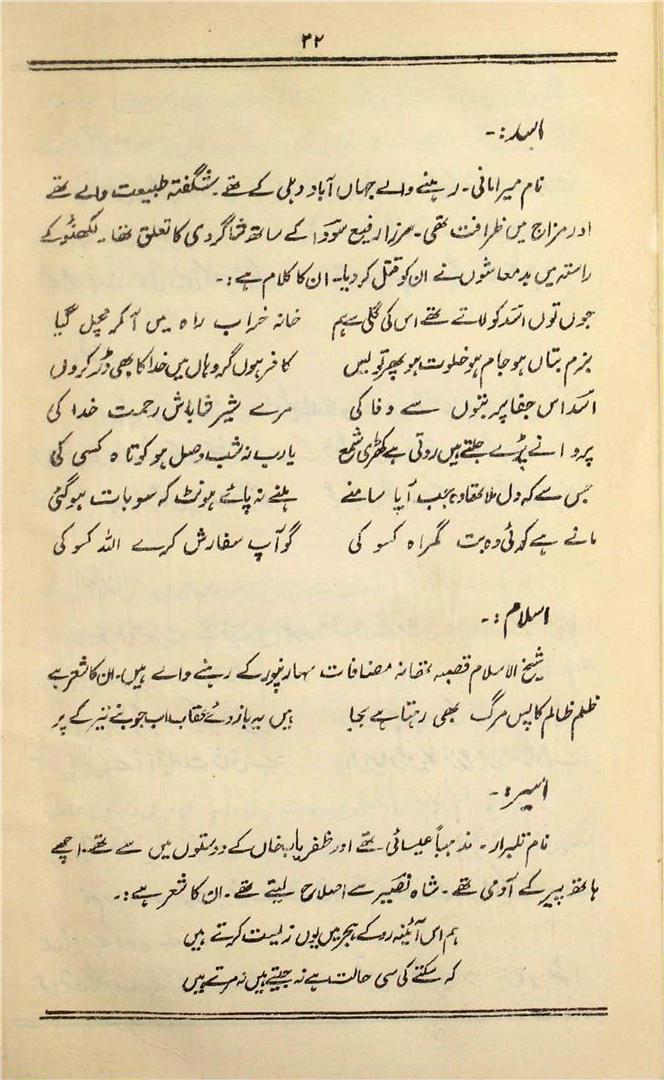 ۳۲
اسد:-
نام میرامانی۔ رہنے والے جہاں آباد دہلی کے تھے۔ شگفتہ طبیعت والے تھے
اور مزاج میں ظرافت تھی۔ مرزا رفیع سوداؔ کے ساتھ شاگردی کا تعلق تھا۔ لکھنؤ کے
راستہ میں بدمعاشوں نے ان کو قتل کر دیا۔ ان کا کلام ہے:-
جوں توں اسدؔ کو لاتے تھے اس کی گلی سے ہم خانہ خراب راہ میں آ کر مچل گیا
بزم بتاں ہو جام ہو خلوت ہو پھر تو بس کافر ہوں گر وہاں میں خدا کا بھی ڈر کروں
اسدؔ اس جفا پر بتوں سے وفا کی مرے شیر شاباش رحمت خدا کی
پروانے پڑے جلتے ہیں روتی ہے کھڑی شمع یارب نہ شب وصل ہو کوتاہ کسی کی
جس سے کہ دل ملا تھا وہ جب آیا سامنے ہلنے نہ پائے ہونٹ کہ سو بات ہو گئی
مانے ہے کوئی وہ بت گمراہ کسو کی گو آپ سفارش کرے اللہ کسو کی
اسلام:-
شیخ الاسلام قصبہ تھانہ مضافات سہارنپور کے رہنے والے ہیں۔ ان کا شعر ہے
ظلم ظالم کا پس مرگ بھی رہتا ہے بجا ہیں یہ بازوئے عقاب اب جو بنے تیر کے پر
اسیر:-
نام تلبرار۔ مذہباً عیسائی تھے اور ظفریاب خاں کے دوستوں میں سے تھے۔ اچھے
ہاتھ پیر کے آدمی تھے۔ شاہ نصیرؔ سے اصلاح لیتے تھے۔ ان کا شعر ہے:-
ہم اس آئینہ رو کے ہجر میں یوں زیست کرتے ہیں
کہ سکتے کی سی حالت ہے نہ جیتے ہیں نہ مرتے ہیں